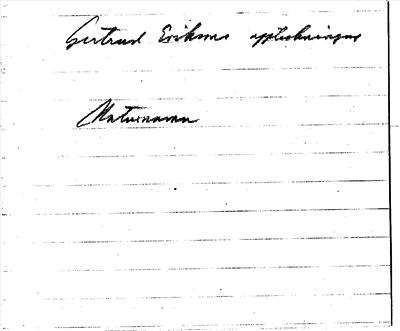 Gertrud Eriksons uppteckningar
Naturnamn